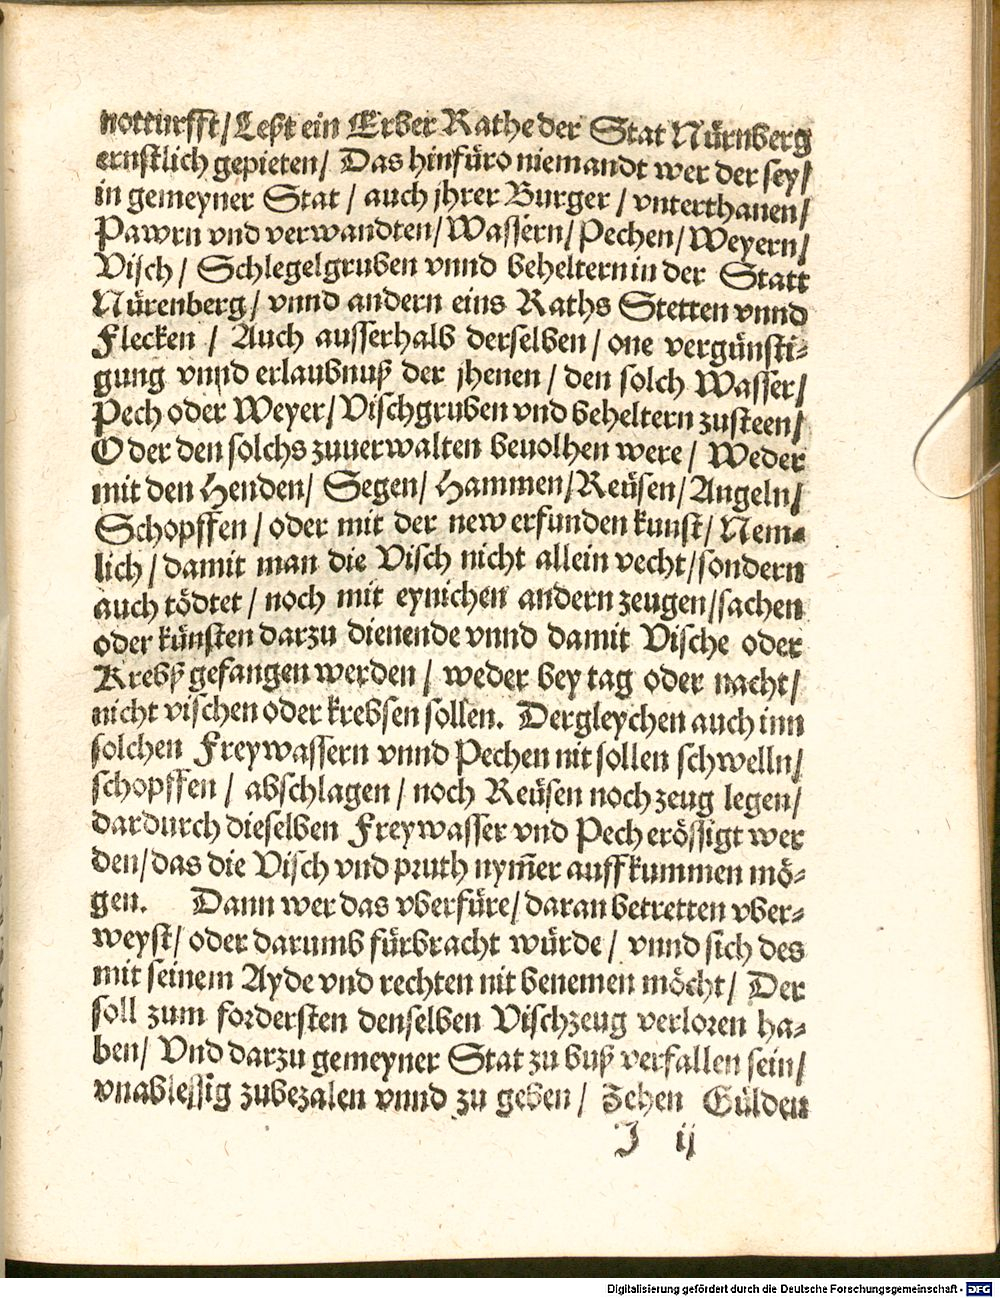 notturfft/ Leßt ein Erber Rathe der Stat Nürnberg
ernstlich gepieten/ Das hinfüro niemandt wer der sey/
in gemeyner Stat / auch jhrer Burger / vnterthanen/
Pawrn vnd verwandten/ Wassern/ Pechen/ Weyern/
Visch / Schlegelgruben vnnd beheltern in der Statt
Nürenberg / vnnd andern eins Raths Stetten vnnd
Flecken / Auch ausserhalb derselben / one vergünsti-
gung vnnd erlaubnuß der jhenen / den solch Wasser/
Pech oder Weyer/ Vischgruben vnd beheltern zusteen/
Oder den solchs zuuerwalten beuolhen were / Weder
mit den Henden/ Segen/ Hammen/ Reüsen/ Angeln/
Schopffen / oder mit der new erfunden kunst/ Nem-
lich / damit man die Visch nicht allein vecht/ sondern
auch tödtet / noch mit eynichen andern zeugen/ sachen
oder künsten darzu dienende vnnd damit Vische oder
Krebß gefangen werden / weder bey tag oder nacht/
nicht vischen oder krebsen sollen. Dergleychen auch inn
solchen Freywassern vnnd Pechen nit sollen schwelln/
schopffen / abschlagen / noch Reüsen noch zeug legen/
dardurch dieselben Freywasser vnd Pech erössigt wer
den/ das die Visch vnd pruth nym̄er auff kummen mö-
gen. Dann wer das vberfüre/ daran betretten vber-
weyst/ oder darumb fürbracht würde / vnnd sich des
mit seinem Ayde vnd rechten nit benemen möcht/ Der
soll zum fordersten denselben Vischzeug verloren ha-
ben/ Vnd darzu gemeyner Stat zu buß verfallen sein/
vnablessig zubezalen vnnd zu geben / Zehen Gülden
J ij
Digitalisierung gefördert durch die Deutsche Forschungsgemeinschaft - DFG